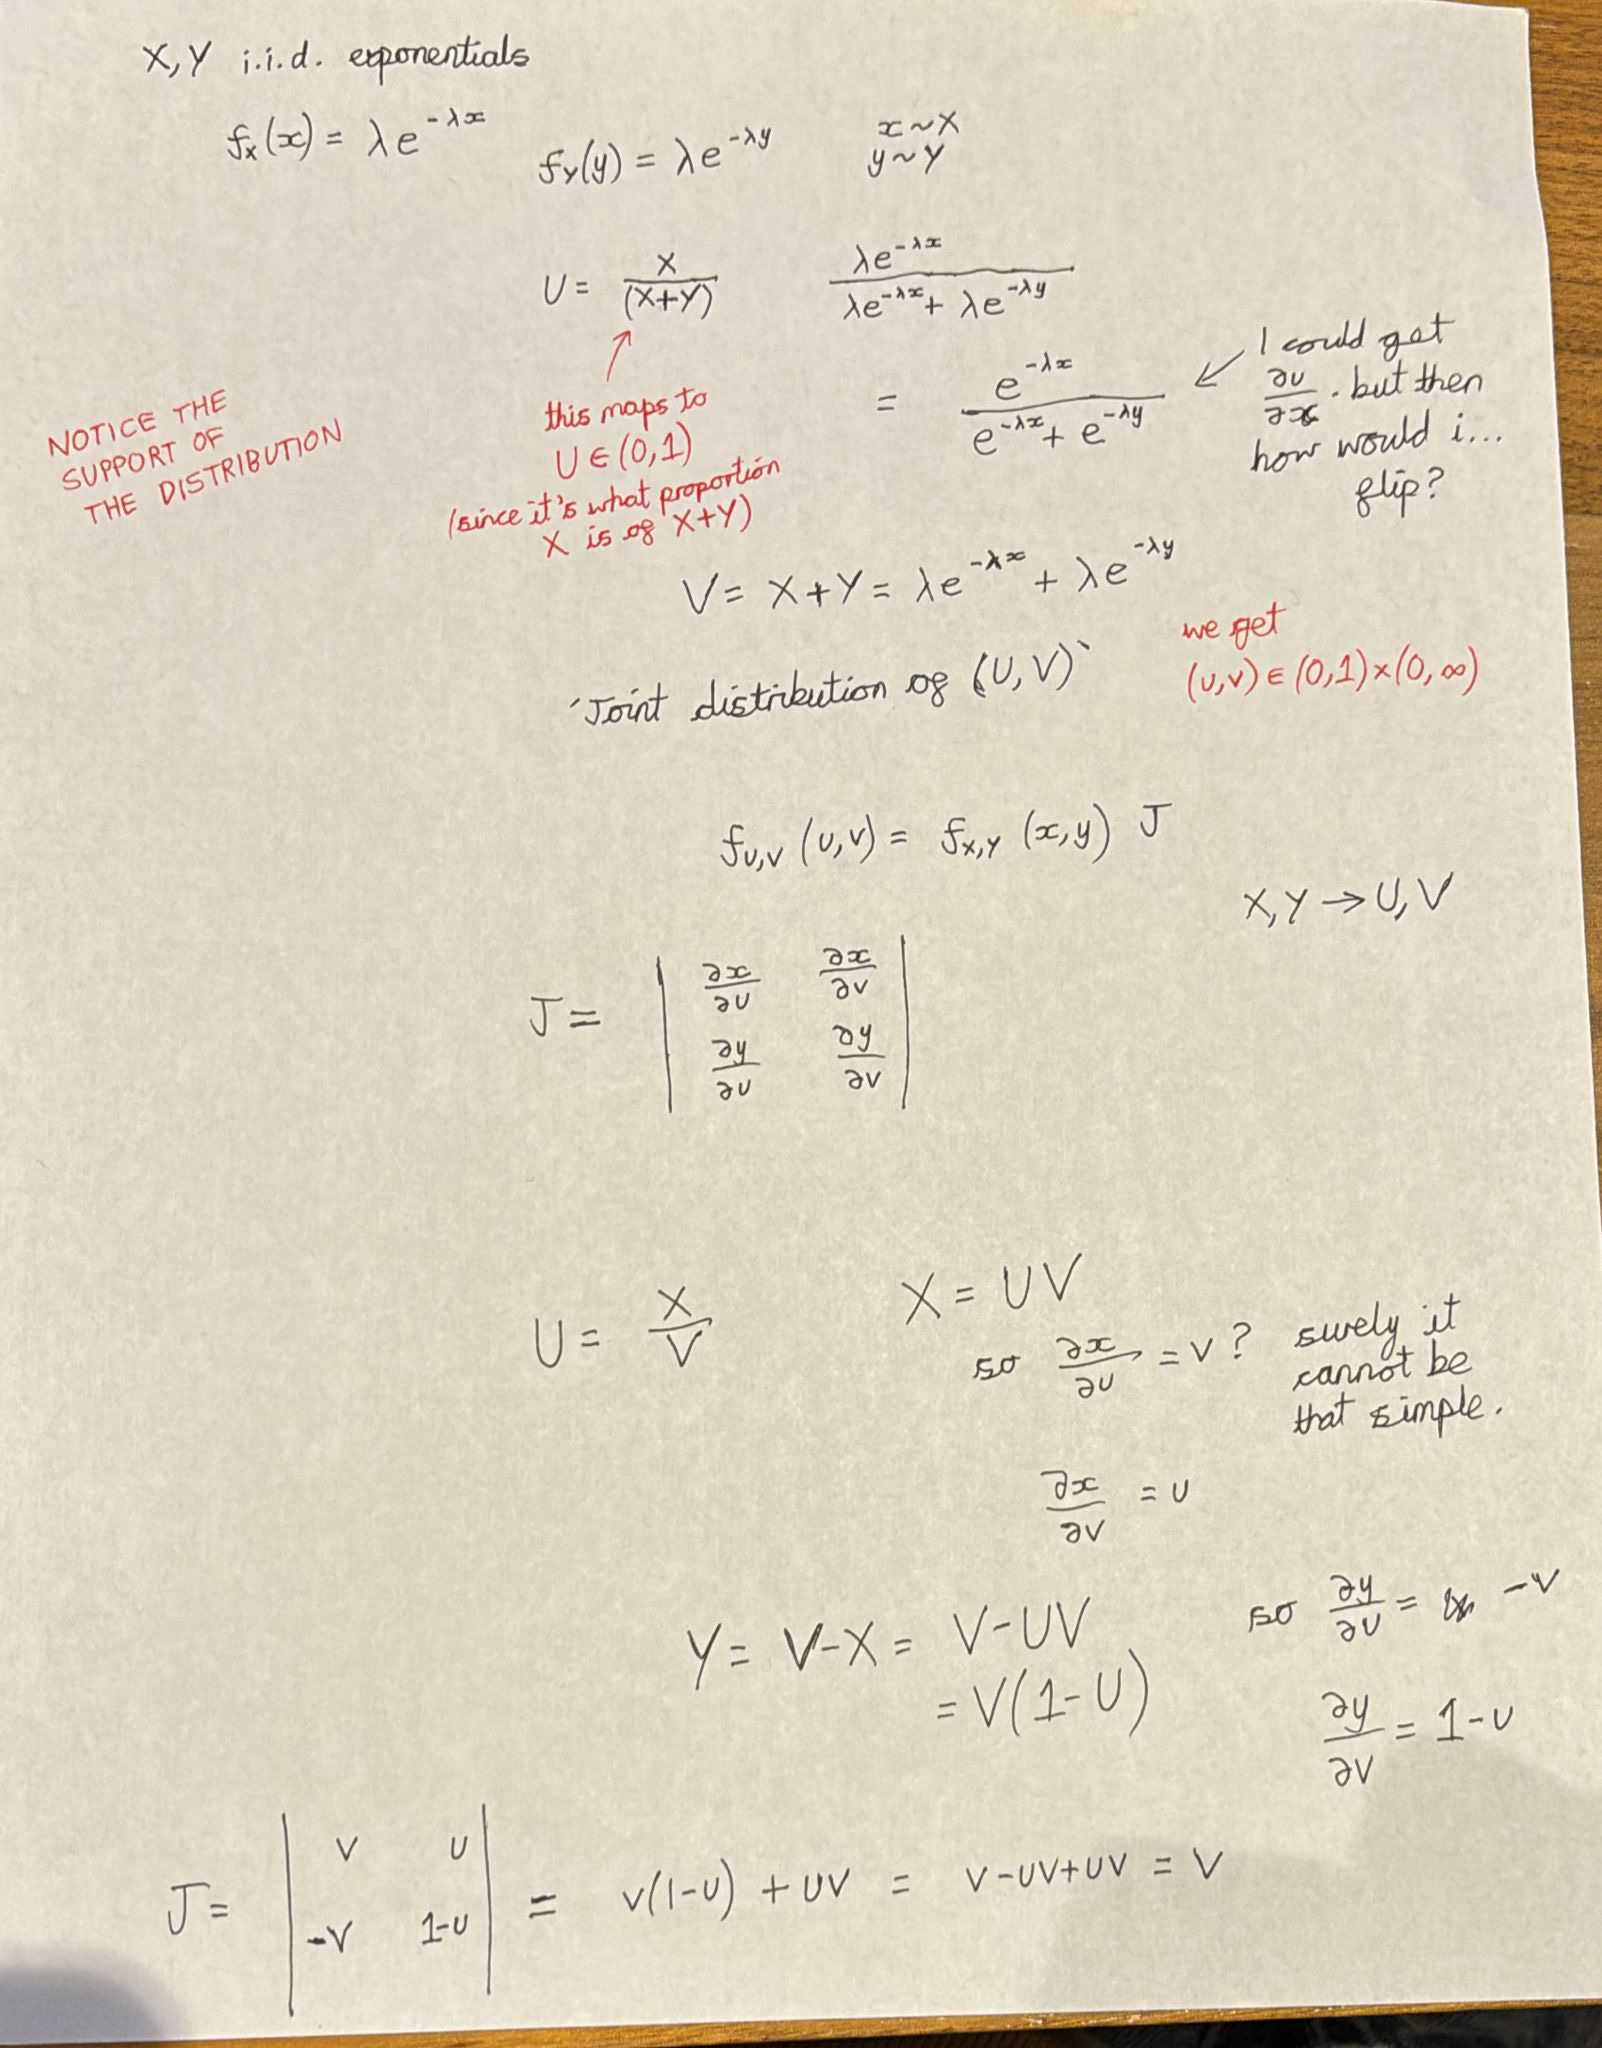 X, Y i.i.d. exponentials
fx(x) = λe^-λx
fY(y) = λe^-λy
x ~ X
y ~ Y
U = X / (X+Y)
λe^-λx / λe^-λx + λe^-λy
= e^-λx / e^-λx + e^-λy
I could get
∂U/∂x . but then
how would i...
flip?
NOTICE THE
SUPPORT OF
THE DISTRIBUTION
this maps to
U ∈ (0,1)
(since it's what proportion
X is of X+Y)
V = X + Y = λe^-λx + λe^-λy
we get
(u,v) ∈ (0,1) × (0,∞)
'Joint distribution of (U, V)`
fU,V (u,v) = fX,Y (x,y) J
X, Y → U, V
J = | ∂x/∂u ∂x/∂v |
| ∂y/∂u ∂y/∂v |
U = X/V
X = UV
so ∂x/∂u = v ?
surely it
cannot be
that simple.
∂x/∂v = u
Y = V-X = V-UV
= V(1-U)
so ∂y/∂u = -v
∂y/∂v = 1-u
J = | v u |
| -v 1-u |
= v(1-u) + uv = v-uv+uv = v